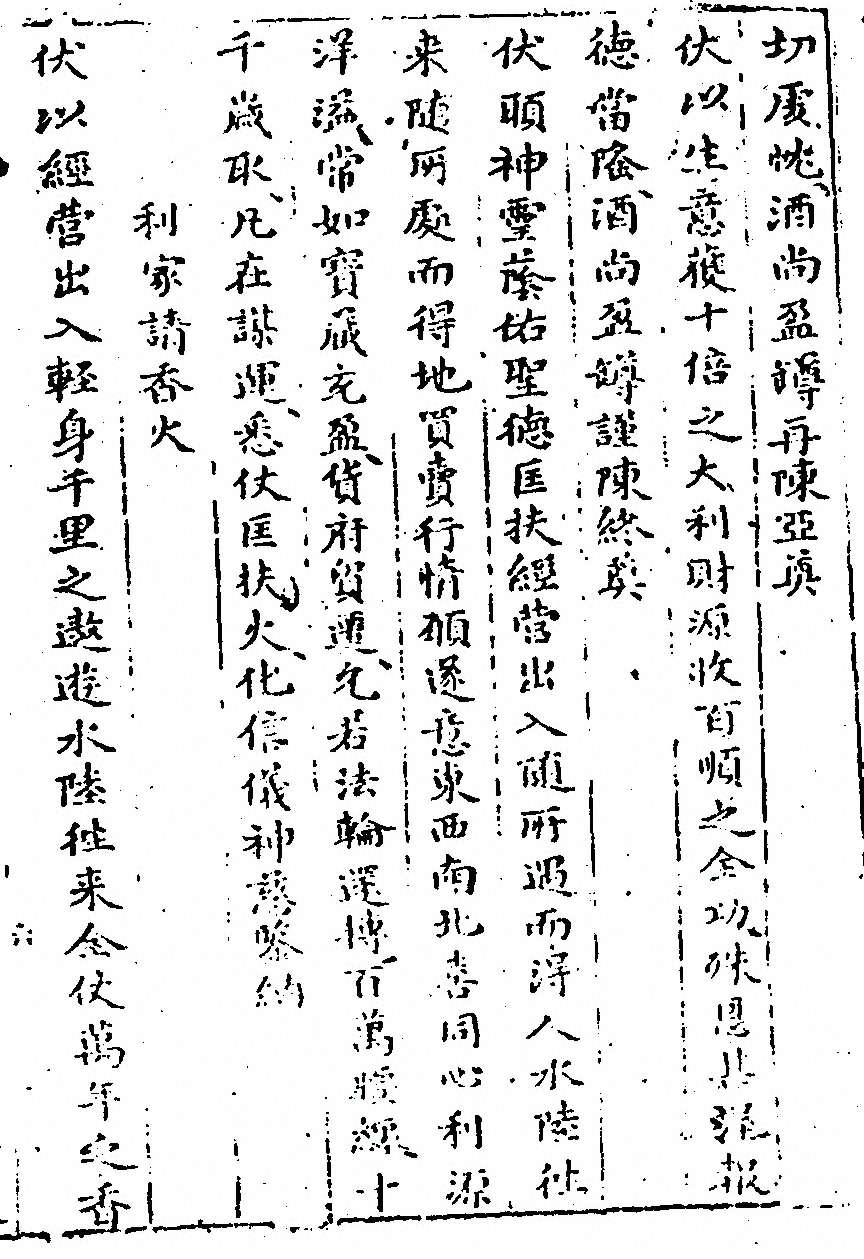 切虔忱酒尚盈罇再陳亞奠
伏以生意獲十倍之大利財源收百順之全功殊恩當報
德當隆酒尚盈罇謹陳終奠
伏願神靈蔭佑聖德匡扶經營出入随所遇而得人水陸往
来随所處而得地買賣行情頓遂意東西南北喜同心利源
洋溢常如寶藏充盈貨府貿遷允若法輪運轉百萬 十
千歲取凡在謀運悉仗匡扶火化信儀神慈鑒納
利家請香火
伏以經营出入軽身千里之遨遊水陸往来全仗萬年之香